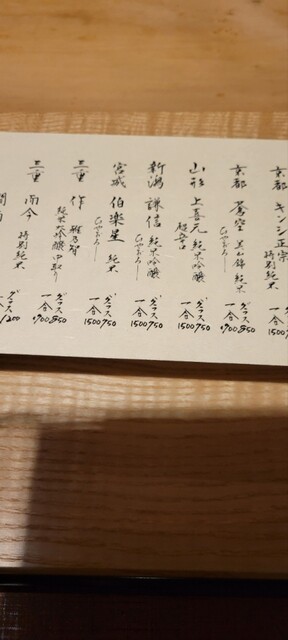 京都 キンシ正宗 特別純米
グラス
一合 1500
京都 蒼空 美山錦 純米
ひやおろし
グラス 750
一合 1500
山形 上喜元 純米吟醸
超辛口
グラス 750
一合 1500
新潟 謙信 純米吟醸
ひやおろし
グラス 750
一合 1500
宮城 伯楽星 純米
ひやおろし
グラス 750
一合 1500
三重 作 雅乃智
純米吟醸 中取り
グラス 850
一合 1700
三重 而今 特別純米
グラス 850
一合 1700